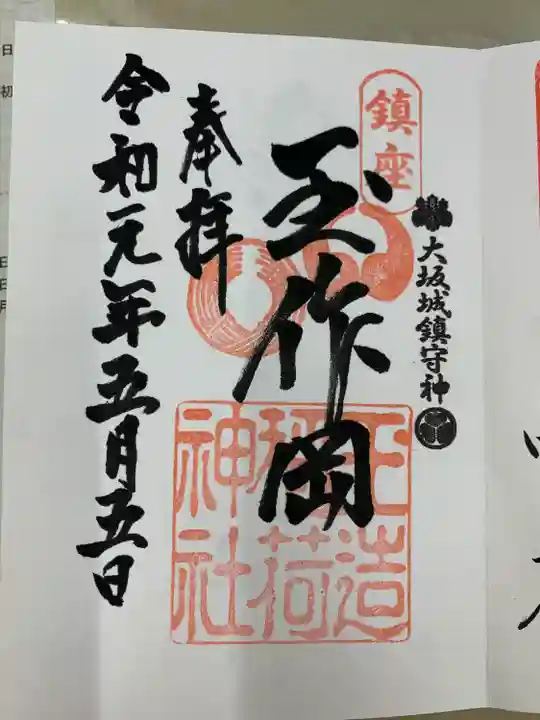 鎮座
大坂城鎮守神
玉作岡
玉造
稲荷
神社
奉拝
令和元年五月五日
日
初